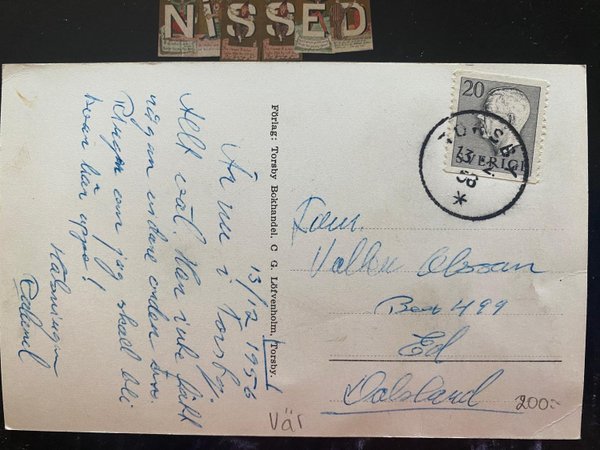 NISSED
13/12 1956
Är nu i Torsby.
Allt väl. Har inte fått
någon vidare order från
Ringen om jag skall bli
kvar här uppe!
Hälsningar
Förlag: Torsby Bokhandel. C G. Löfvenholm, Torsby.
20
SVERIGE
TORSBY
13 12
56
Fam.
Olsson
Box 499
Ed
Dalsland
Vär
200:-